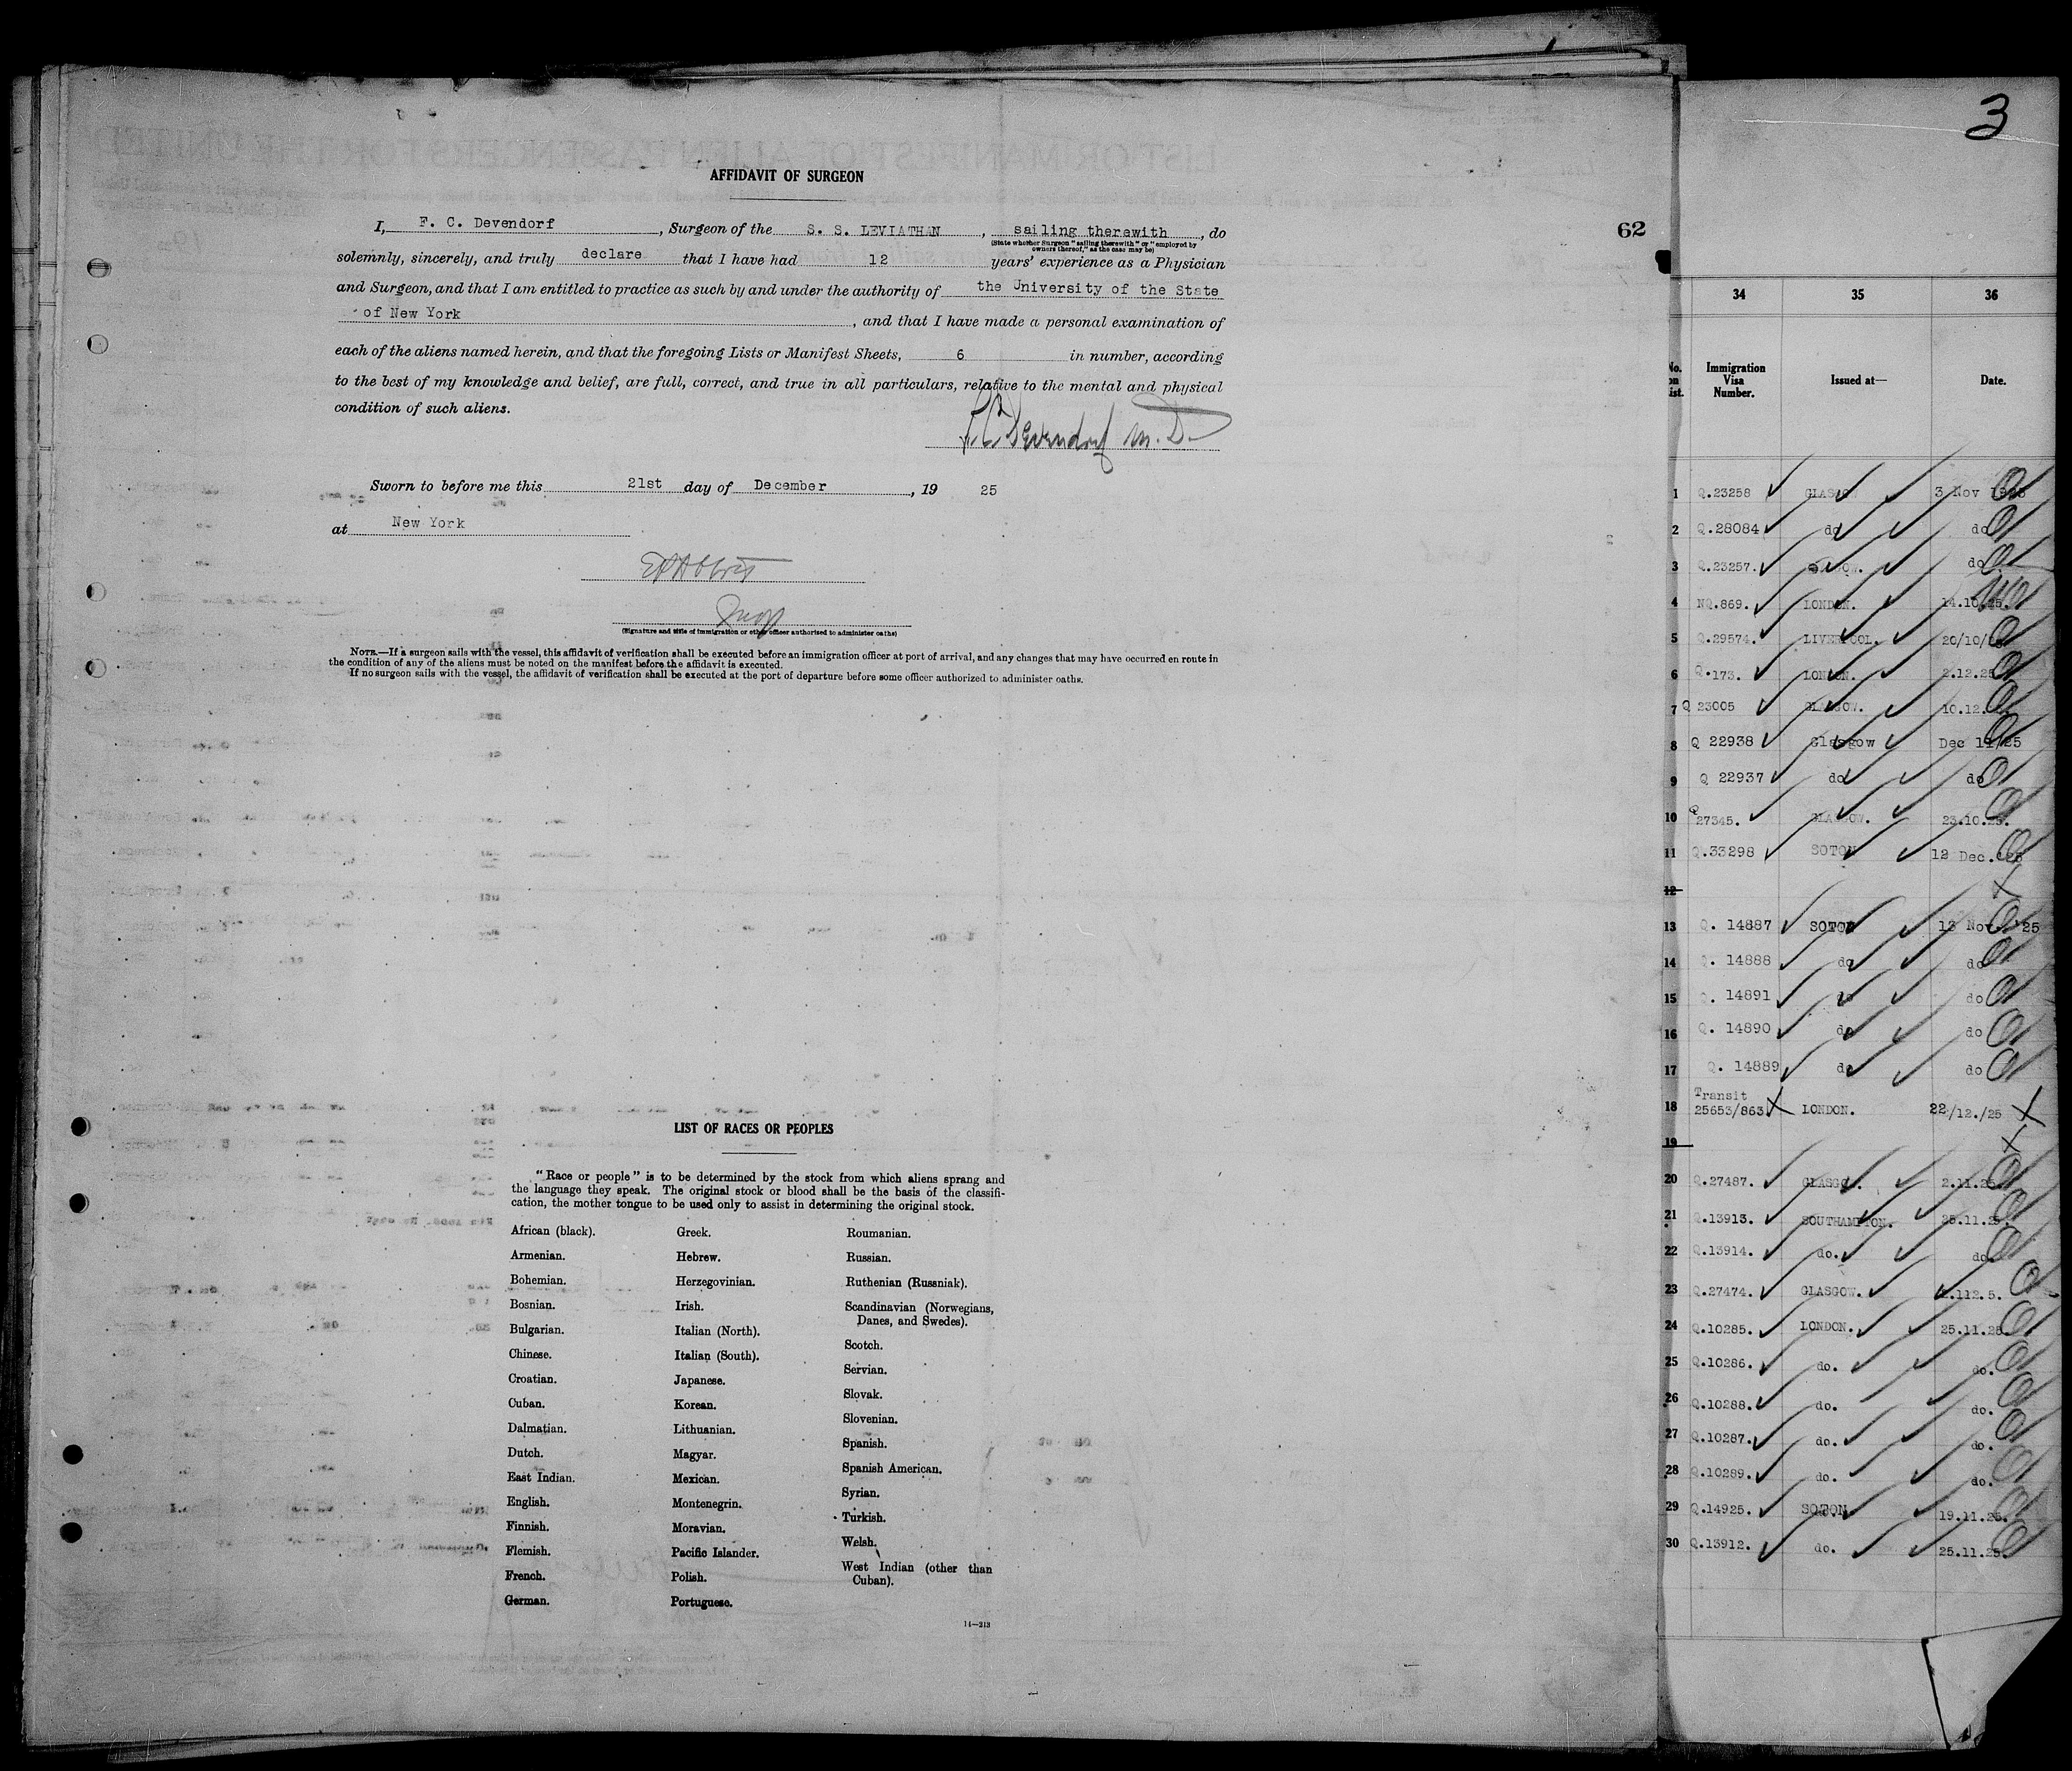 AFFIDAVIT OF SURGEON
I, F. C. Devendorf, Surgeon of the S. S. LEVIATHAN, sailing therewith, do
(State whether Surgeon "sailing therewith" or "employed by
owners thereof," as the case may be)
solemnly, sincerely, and truly declare that I have had 12 years' experience as a Physician
and Surgeon, and that I am entitled to practice as such by and under the authority of the University of the State
of New York, and that I have made a personal examination of
each of the aliens named herein, and that the foregoing Lists or Manifest Sheets, 6 in number, according
to the best of my knowledge and belief, are full, correct, and true in all particulars, relative to the mental and physical
condition of such aliens.
F. C. Devendorf M. D.
Sworn to before me this 21st day of December, 19 25
at New York
(Signature and title of immigration or other officer authorized to administer oaths)
NOTE.—If a surgeon sails with the vessel, this affidavit of verification shall be executed before an immigration officer at port of arrival, and any changes that may have occurred en route in
the condition of any of the aliens must be noted on the manifest before the affidavit is executed.
If no surgeon sails with the vessel, the affidavit of verification shall be executed at the port of departure before some officer authorized to administer oaths.
LIST OF RACES OR PEOPLES
"Race or people" is to be determined by the stock from which aliens sprang and
the language they speak. The original stock or blood shall be the basis of the classifi-
cation, the mother tongue to be used only to assist in determining the original stock.
African (black).
Armenian.
Bohemian.
Bosnian.
Bulgarian.
Chinese.
Croatian.
Cuban.
Dalmatian.
Dutch.
East Indian.
English.
Finnish.
Flemish.
French.
German.
Greek.
Hebrew.
Herzegovinian.
Irish.
Italian (North).
Italian (South).
Japanese.
Korean.
Lithuanian.
Magyar.
Mexican.
Montenegrin.
Moravian.
Pacific Islander.
Polish.
Portuguese.
Roumanian.
Russian.
Ruthenian (Russniak).
Scandinavian (Norwegians,
Danes, and Swedes).
Scotch.
Servian.
Slovak.
Slovenian.
Spanish.
Spanish American.
Syrian.
Turkish.
Welsh.
West Indian (other than
Cuban).
14—213
62
3
34 35 36
No. on list. Immigration Visa Number. Issued at— Date.
1 Q.23258 GLASGOW 3 Nov 1925
2 Q.28084 do do
3 Q.23257. GLASGOW. do
4 NQ.869. LONDON. 14.10.25.
5 Q.29574. LIVERPOOL. 20/10/25
6 Q.173. LONDON. 2.12.25
7 Q 23005 GLASGOW. 10.12.
8 Q 22938 Glasgow Dec 11/25
9 Q 22937 do do
10 Q 27345. GLASGOW. 23.10.25.
11 Q.33298 SOTON 12 Dec.
12
13 Q. 14887 SOTON 13 Nov. '25
14 Q. 14888 do do
15 Q. 14891 do do
16 Q. 14890 do do
17 Q. 14889 do do
18 Transit 25653/863 LONDON. 22/12./25
19
20 Q.27487. GLASGOW. 2.11.25
21 Q.13913. SOUTHAMPTON. 25.11.25.
22 Q.13914. do. do.
23 Q.27474. GLASGOW. .112.5.
24 Q.10285. LONDON. 25.11.25.
25 Q.10286. do. do.
26 Q.10288. do. do.
27 Q.10287. do. do.
28 Q.10289. do. do.
29 Q.14925. SOTON 19.11.25.
30 Q.13912. do. 25.11.25.